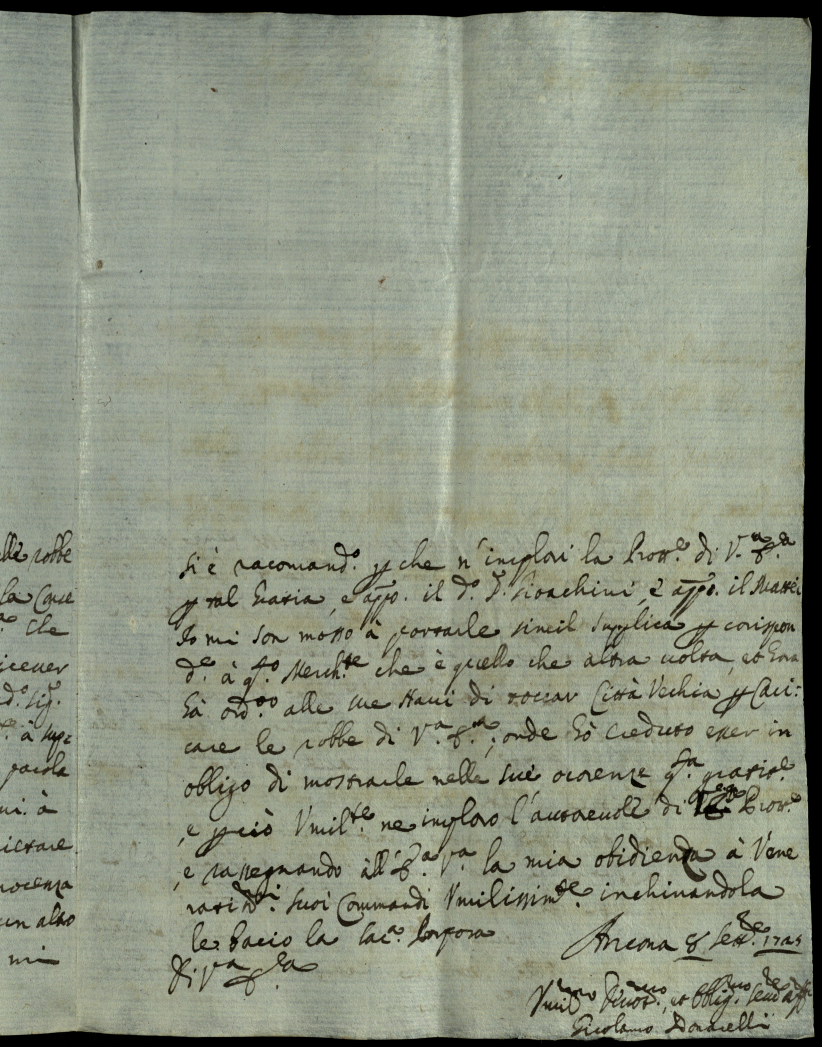 elle robbe
la Cone
che
icever
d.º sig.
à supe
parola
ni. à
ietare
nocenza
un altro
mi
si è racomand.º p che n'implori la Prott.e di V.ª E.ª
p tal Gratia, e app.º il d.º S.r Gioachini, e app.º il Mattei
Io mi son mosso à portarle simil supplica p corrispon
d.e à q.sto Merch.te che è quello che altra volta, et hora
hà ord.to alle sue Navi di toccar Città Vechia p Cari:
care le robbe di V.ª E.ª; onde hò creduto esser in
obligo di mostrarle nelle sue ocorenze q.sta gratit.e
, e p ciò Umil.te ne imploro l'autorevole di Lei Prott.e
, e rassegnando all'E.ª V.ª la mia obidienza à Vene
ratis.mi suoi Commandi Umilissim.te inchinandola
le bacio la Sac.ª Porpora
Di V.ª E.ª
Ancona 8 Sett.e 1725
Umil.mo Devot.mo, et Oblig.mo Serv.e
Girolamo Donarelli